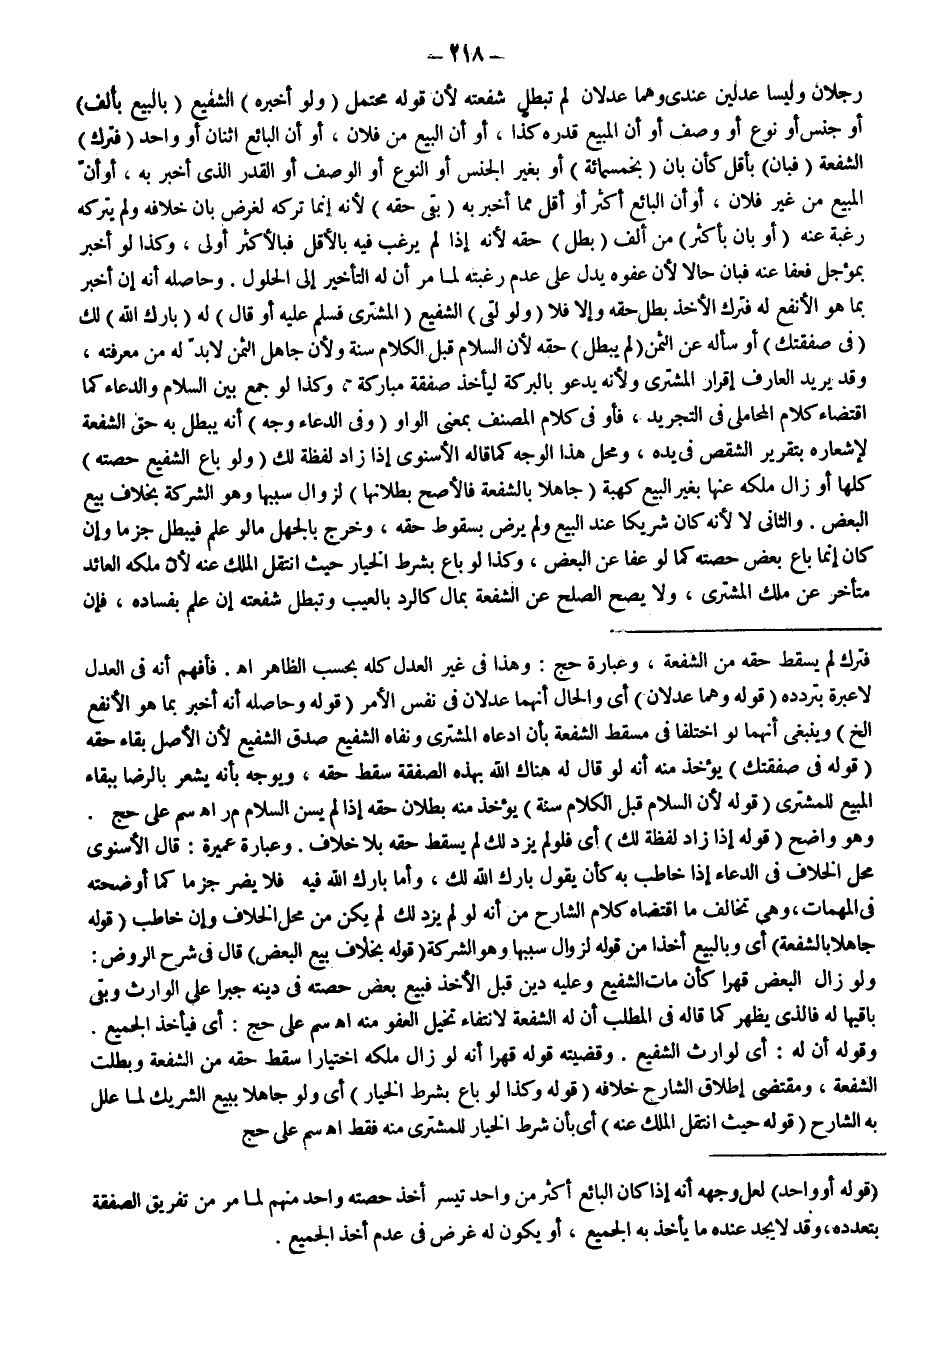 – ٢١٨ –
رجلان وليسا عدلين عندى وهما عدلان لم تبطل شفعته لأن قوله محتمل ( ولو أخبره ) الشفيع ( بالبيع بألف )
أو جنس أو نوع أو وصف أو أن المبيع قدره كذا ، أو أن البيع من فلان ، أو أن البائع اثنان أو واحد ( فترك )
الشفعة ( فبان ) بأقل كأن بان ( بخمسمائة ) أو بغير الجنس أو النوع أو الوصف أو القدر الذى أخبر به ، أو أنّ
المبيع من غير فلان ، أو أن البائع أكثر أو أقل مما أخبر به ( بقى حقه ) لأنه إنما تركه لغرض بان خلافه ولم يتركه
رغبة عنه ( أو بان بأكثر ) من ألف ( بطل ) حقه لأنه إذا لم يرغب فيه بالأقل فبالأكثر أولى ، وكذا لو أخبر
بمؤجل فعفا عنه فبان حالا لأن عفوه يدل على عدم رغبته لما مر أن له التأخير إلى الحلول . وحاصله أنه إن أخبر
بما هو الأنفع له فترك الأخذ بطل حقه وإلا فلا ( ولو لقى ) الشفيع ( المشترى فسلم عليه أو قال ) له ( بارك الله ) لك
( فى صفقتك ) أو سأله عن الثمن ( لم يبطل ) حقه لأن السلام قبل الكلام سنة ولأن جاهل الثمن لابدّ له من معرفته ،
وقد يريد العارف إقرار المشترى ولأنه يدعو بالبركة ليأخذ صفقة مباركة ، وكذا لو جمع بين السلام والدعاء كما
اقتضاه كلام المحاملى فى التجريد ، فأو فى كلام المصنف بمعنى الواو ( وفى الدعاء وجه ) أنه يبطل به حق الشفعة
لإشعاره بتقرير الشقص فى يده ، ومحل هذا الوجه كما قاله الأسنوى إذا زاد لفظة لك ( ولو باع الشفيع حصته )
كلها أو زال ملكه عنها بغير البيع كهبة ( جاهلا بالشفعة فالأصح بطلانها ) لزوال سببها وهو الشركة بخلاف بيع
البعض . والثانى لا لأنه كان شريكا عند البيع ولم يرض بسقوط حقه ، وخرج بالجهل مالو علم فيبطل جزما وإن
كان إنما باع بعض حصته كما لو عفا عن البعض ، وكذا لو باع بشرط الخيار حيث انتقل الملك عنه لأن ملكه العائد
متأخر عن ملك المشترى ، ولا يصح الصلح عن الشفعة بمال كالرد بالعيب وتبطل شفعته إن علم بفساده ، فإن
فترك لم يسقط حقه من الشفعة ، وعبارة حج : وهذا فى غير العدل كله بحسب الظاهر اه . فأفهم أنه فى العدل
لا عبرة بتردده ( قوله وهما عدلان ) أى والحال أنهما عدلان فى نفس الأمر ( قوله وحاصله أنه أخبر بما هو الأنفع
الخ ) وينبغى أنهما لو اختلفا فى مسقط الشفعة بأن ادعاه المشترى ونفاه الشفيع صدق الشفيع لأن الأصل بقاء حقه
( قوله فى صفقتك ) يؤخذ منه أنه لو قال له هناك الله بهذه الصفقة سقط حقه ، ويوجه بأنه يشعر بالرضا ببقاء
المبيع للمشترى ( قوله لأن السلام قبل الكلام سنة ) يؤخذ منه بطلان حقه إذا لم يسن السلام م ر اه سم على حج .
وهو واضح ( قوله إذا زاد لفظة لك ) أى فلو لم يزد لك لم يسقط حقه بلا خلاف . وعبارة عميرة : قال الأسنوى
محل الخلاف فى الدعاء إذا خاطب به كأن يقول بارك الله لك ، وأما بارك الله فيه فلا يضر جزما كما أوضحته
فى المهمات ، وهى تخالف ما اقتضاه كلام الشارح من أنه لو لم يزد لك لم يكن من محل الخلاف وإن خاطب ( قوله
جاهلا بالشفعة ) أى وبالبيع أخذا من قوله لزوال سببها وهو الشركة ( قوله بخلاف بيع البعض ) قال فى شرح الروض :
ولو زال البعض قهرا كأن مات الشفيع وعليه دين قبل الأخذ فبيع بعض حصته فى دينه جبرا على الوارث وبقى
باقيها له فالذى يظهر كما قاله فى المطلب أن له الشفعة لانتفاء تخيل العفو منه اه سم على حج : أى فيأخذ الجميع .
وقوله أن له : أى لوارث الشفيع . وقضيته قوله قهرا أنه لو زال ملكه اختيارا سقط حقه من الشفعة وبطلت
الشفعة ، ومقتضى إطلاق الشارح خلافه ( قوله وكذا لو باع بشرط الخيار ) أى ولو جاهلا ببيع الشريك لما علل
به الشارح ( قوله حيث انتقل الملك عنه ) أى بأن شرط الخيار للمشترى منه فقط اه سم على حج
( قوله أو واحد ) لعل وجهه أنه إذا كان البائع أكثر من واحد تيسر أخذ حصته واحد منهم لما مر من تفريق الصفقة
بتعدده ، وقد لا يجد عنده ما يأخذ به الجميع ، أو يكون له غرض فى عدم أخذ الجميع .